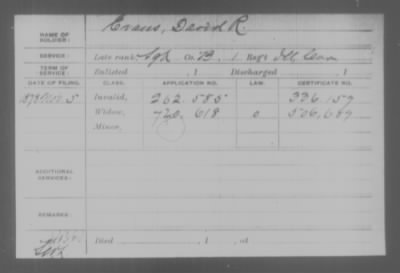 NAME OF SOLDIER: Evans, David R.
SERVICE: Late rank Sgt Co. B, 1 Reg't Ill. Cav.
TERM OF SERVICE: Enlisted , 1 Discharged , 1
DATE OF FILING. CLASS. APPLICATION NO. LAW. CERTIFICATE NO.
1878 Nov. 5 Invalid, 262.585 336.157
Widow, 618 506.689
Minor,
ADDITIONAL SERVICES:
REMARKS:
Died , 1 , at